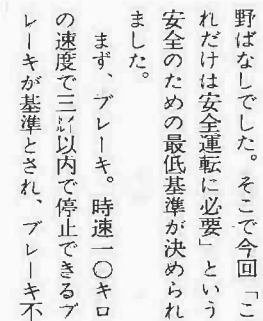 野ばなしでした。そこで今回「こ
れだけは安全運転に必要」という
安全のための最低基準が決められ
ました。
まず、ブレーキ。時速一〇キロ
の速度で三㍍以内で停止できるブ
レーキが基準とされ、ブレーキ不